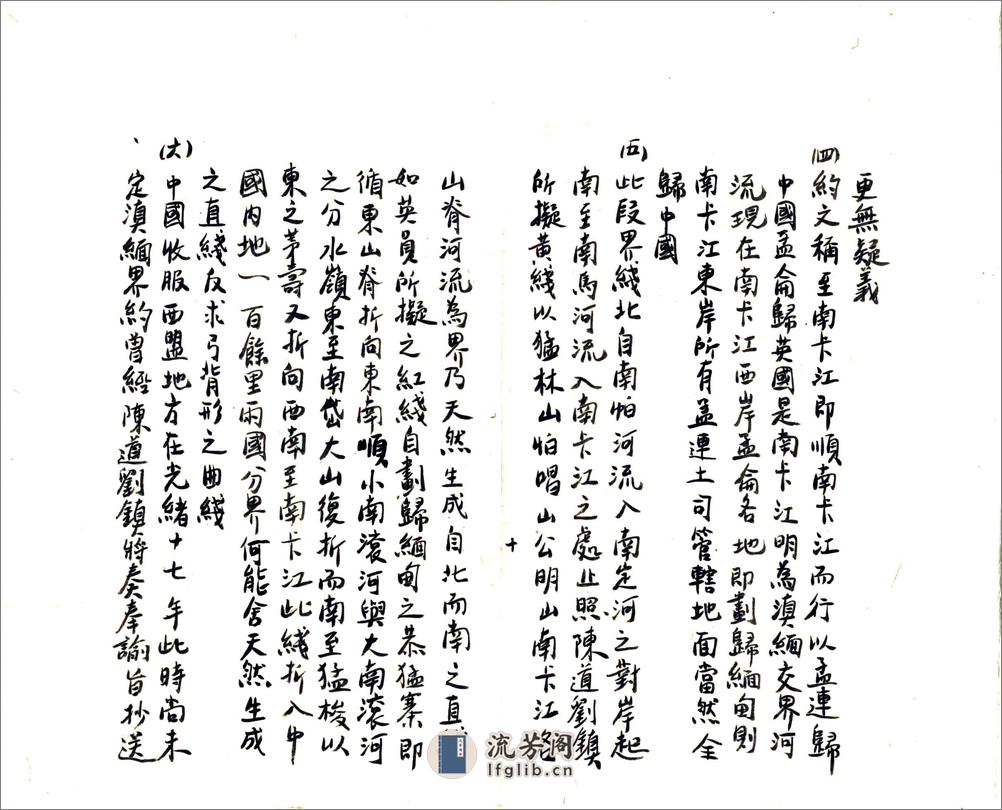 更無疑義
(四)約文稱至南卡江即順南卡江而行以孟連歸
中國孟侖歸英國是南卡江明為滇緬交界河
流現在南卡江西岸孟侖各地即劃歸緬甸則
南卡江東岸所有孟連土司管轄地面當然全
歸中國
(五)此段界綫北自南怕河流入南定河之對岸起
南至南馬河流入南卡江之處止照陳道劉鎮
所擬黃綫以猛林山怕唱山公明山南卡江
十
山脊河流為界乃天然生成自北而南之直
如英員所擬之紅綫自劃歸緬甸之恭猛寨即
循東山脊折向東南順小南滾河與大南滾河
之分水嶺東至南岱大山復折而南至猛梭以
東之茅壽又折向西南至南卡江此綫折入中
國內地一百餘里兩國分界何能舍天然生成
之直綫反求弓背形之曲綫
(六)中國收服西盟地方在光緒十七年此時尚未
定滇緬界約曾經陳道劉鎮將奏奉諭旨抄送
流芳閣
lfglib.cn